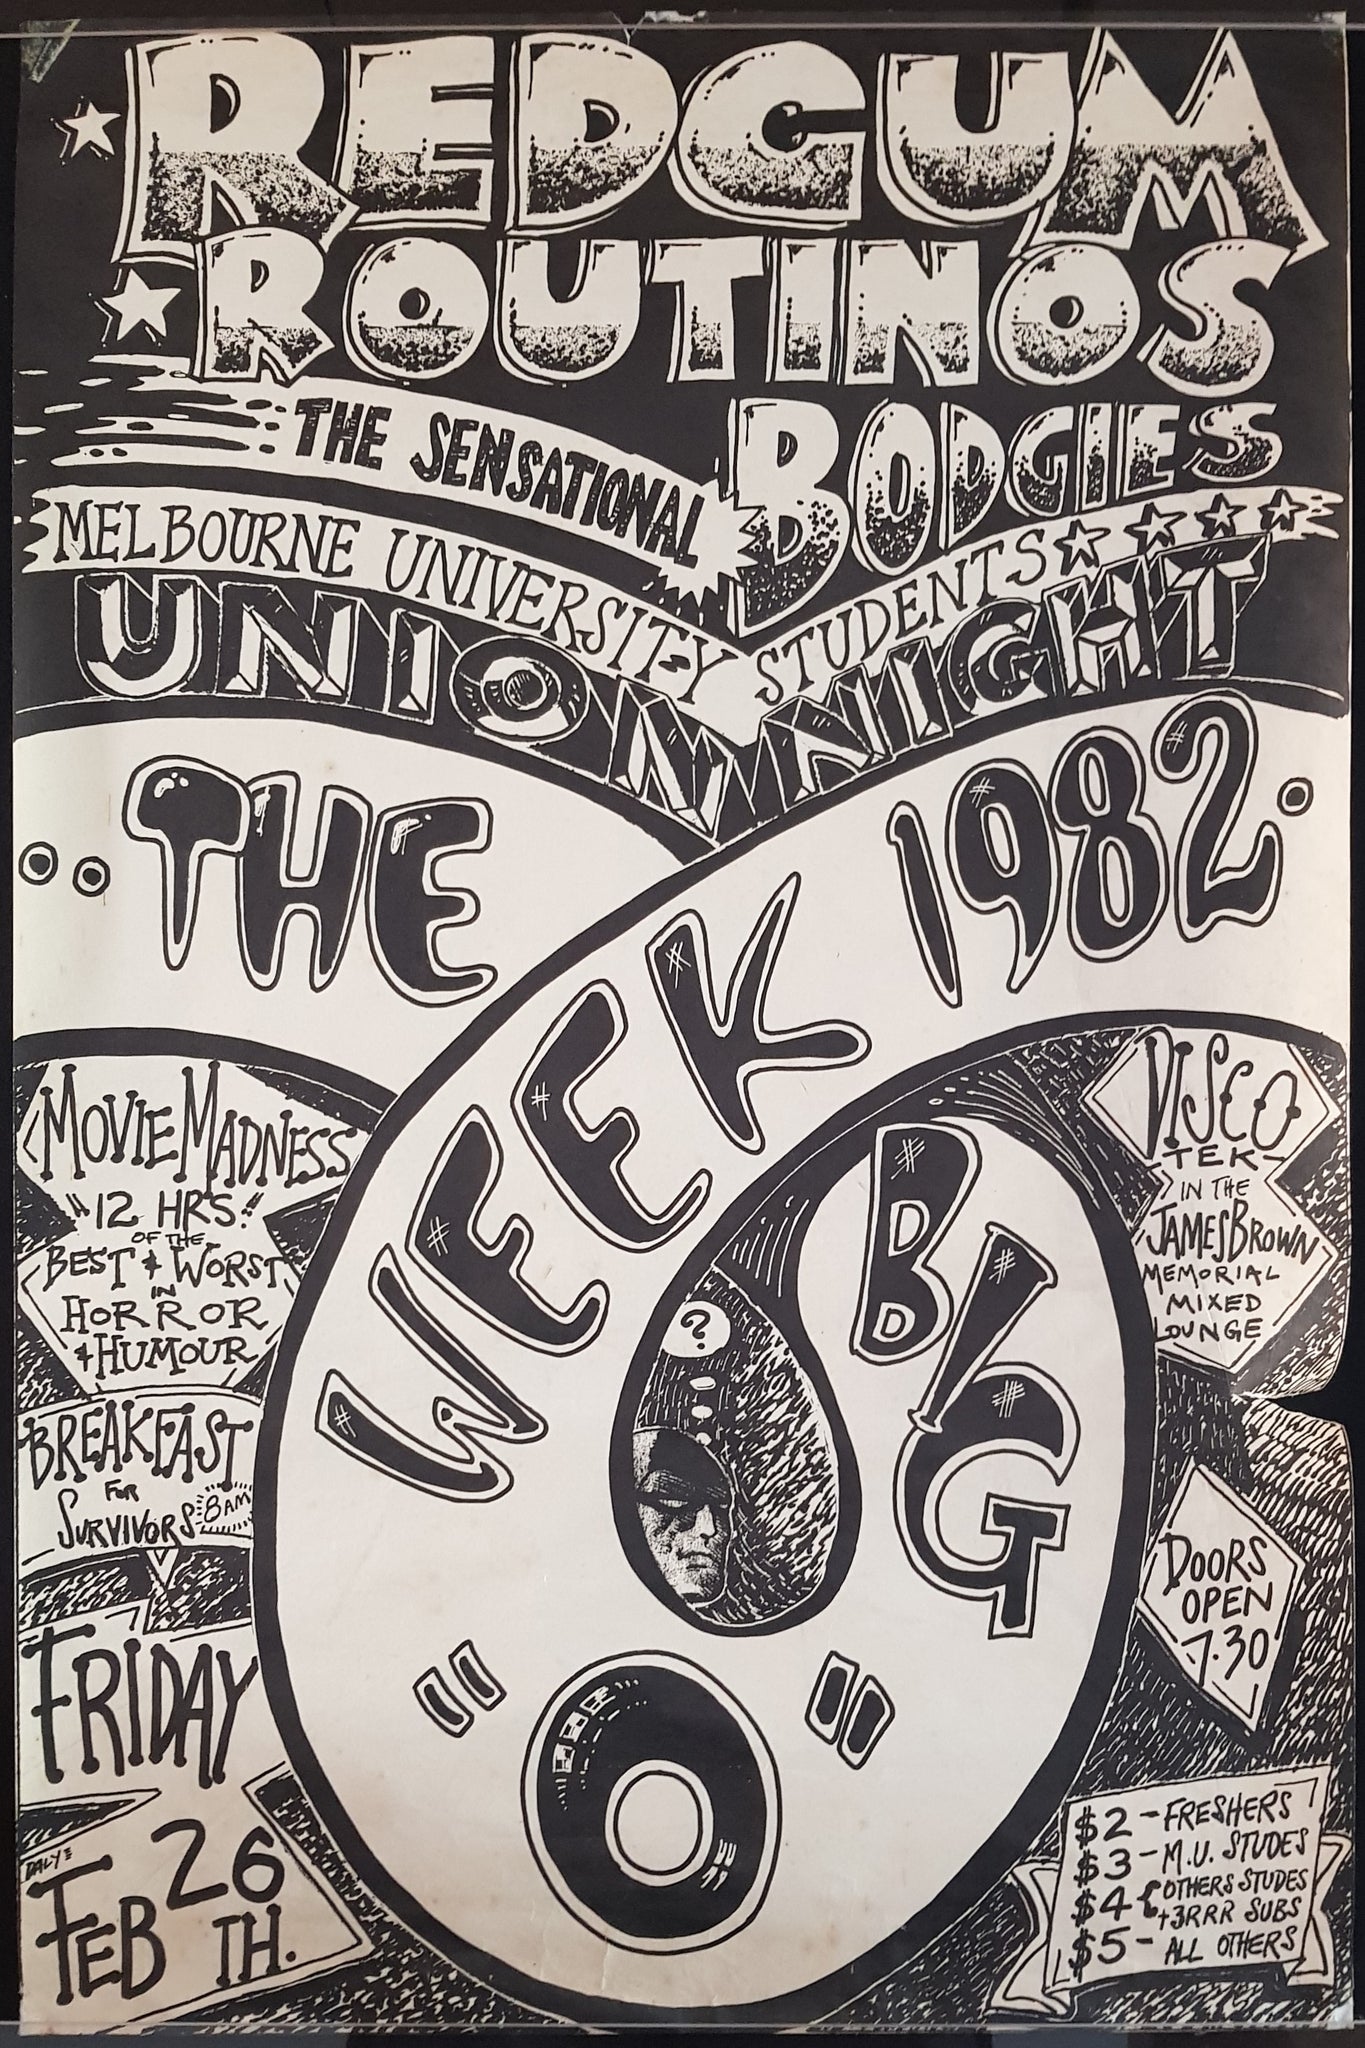 REDGUM
ROUTINOS
THE SENSATIONAL BODGIES
MELBOURNE UNIVERSITY STUDENTS
UNION NIGHT
THE WEEK 1982
BIG "O"
MOVIE MADNESS
"12 HRS."
OF THE
BEST & WORST
IN
HORROR
& HUMOUR
BREAKFAST
FOR
SURVIVORS 8AM
FRIDAY
FEB 26TH.
DALY
DISCO
TEK
IN THE
JAMES BROWN
MEMORIAL
MIXED
LOUNGE
?
DOORS
OPEN
7.30
$2 - FRESHERS
$3 - M.U. STUDES
$4 { OTHERS STUDES
+3RRR SUBS
$5 - ALL OTHERS